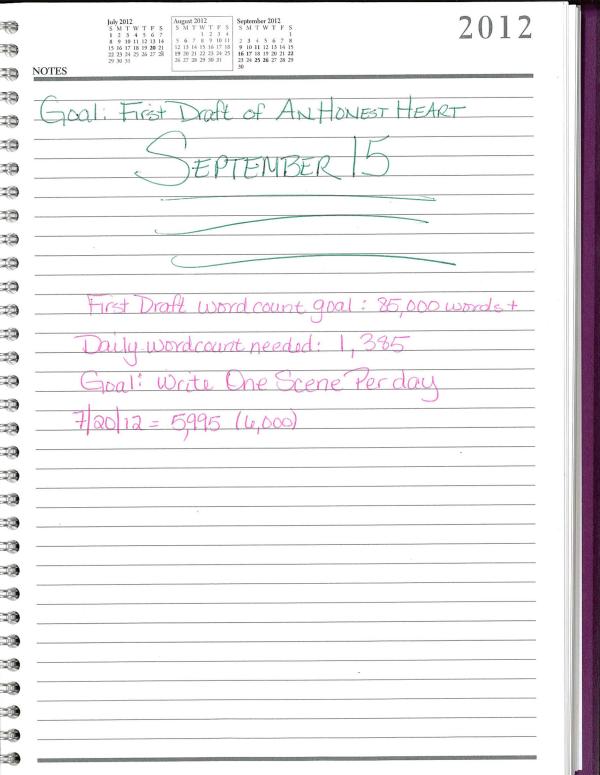 July 2012
S M T W T F S
1 2 3 4 5 6 7
8 9 10 11 12 13 14
15 16 17 18 19 20 21
22 23 24 25 26 27 28
29 30 31
August 2012
S M T W T F S
1 2 3 4
5 6 7 8 9 10 11
12 13 14 15 16 17 18
19 20 21 22 23 24 25
26 27 28 29 30 31
September 2012
S M T W T F S
1
2 3 4 5 6 7 8
9 10 11 12 13 14 15
16 17 18 19 20 21 22
23 24 25 26 27 28 29
30
2012
NOTES
Goal: First Draft of An Honest Heart
September 15
First Draft wordcount goal: 85,000 words +
Daily wordcount needed: 1,385
Goal: Write One Scene Per day
7/20/12 = 5,995 (6,000)